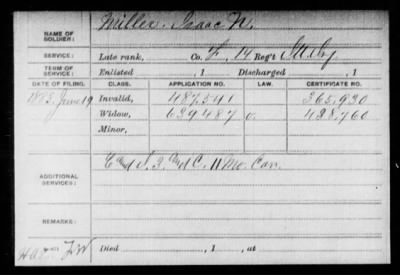 NAME OF SOLDIER: Miller, Isaac N.
SERVICE: Late rank, Co. F, 14 Reg't Ill. Inf.
TERM OF SERVICE: Enlisted , 1 Discharged , 1
DATE OF FILING. CLASS. APPLICATION NO. LAW. CERTIFICATE NO.
1883, June 19 Invalid, 487.541 365.930
Widow, 639487 428.760
Minor,
ADDITIONAL SERVICES: & 3 C. 11 Mo. Cav.
REMARKS:
Died , 1 , at